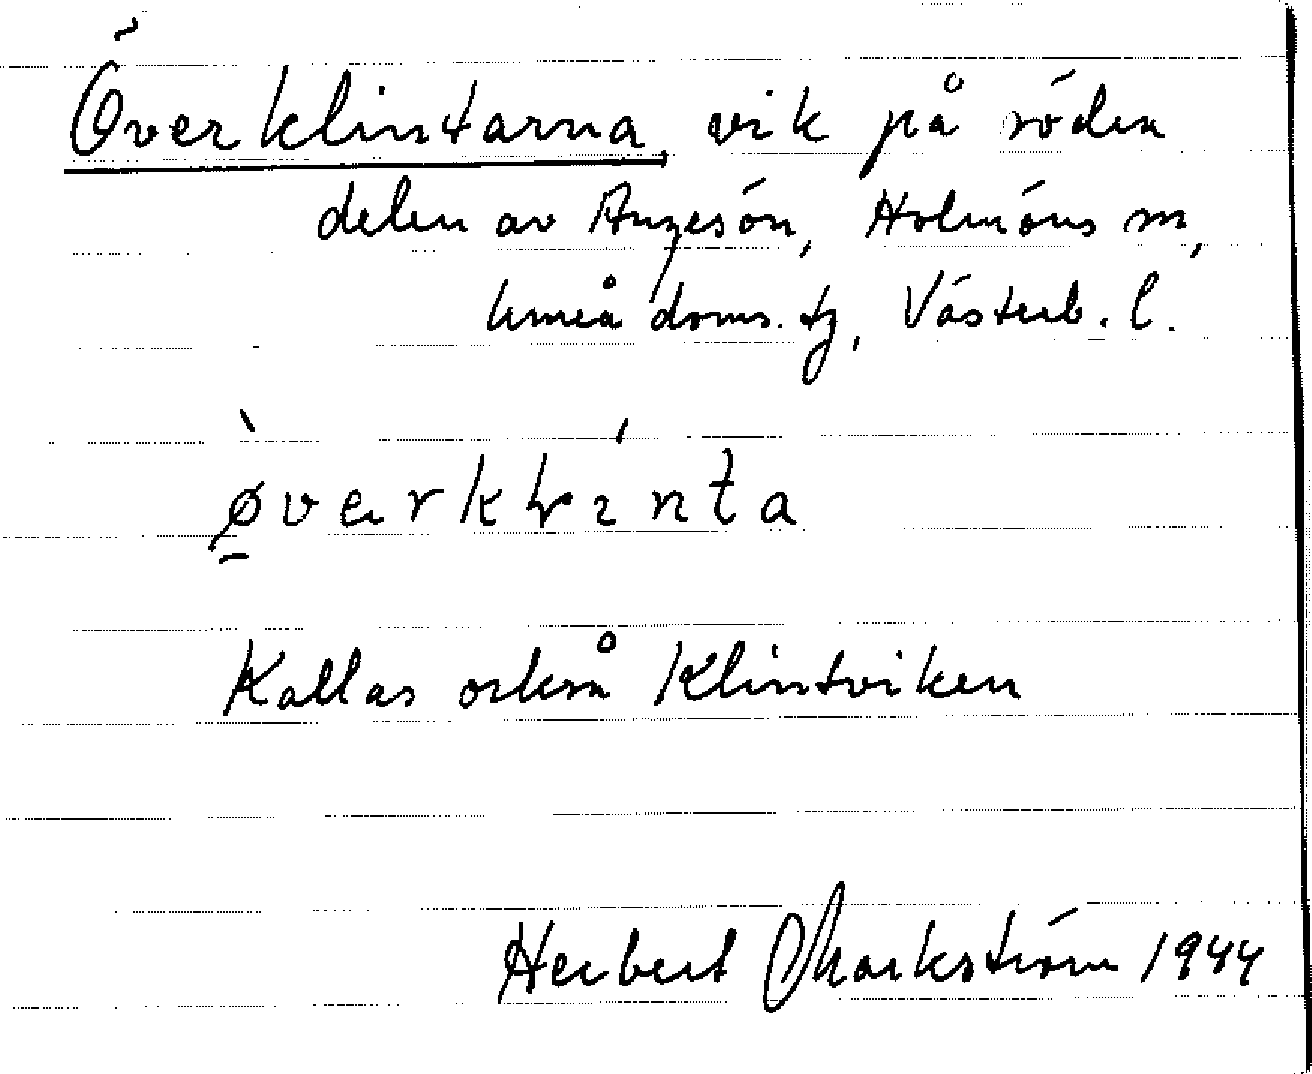 Överklintarna, vik på södra
delen av Ängesön, Holmöns sn,
Umeå doms. tg, Västerb. l.
Kallas också Klintviken
Herbert Markström 1944